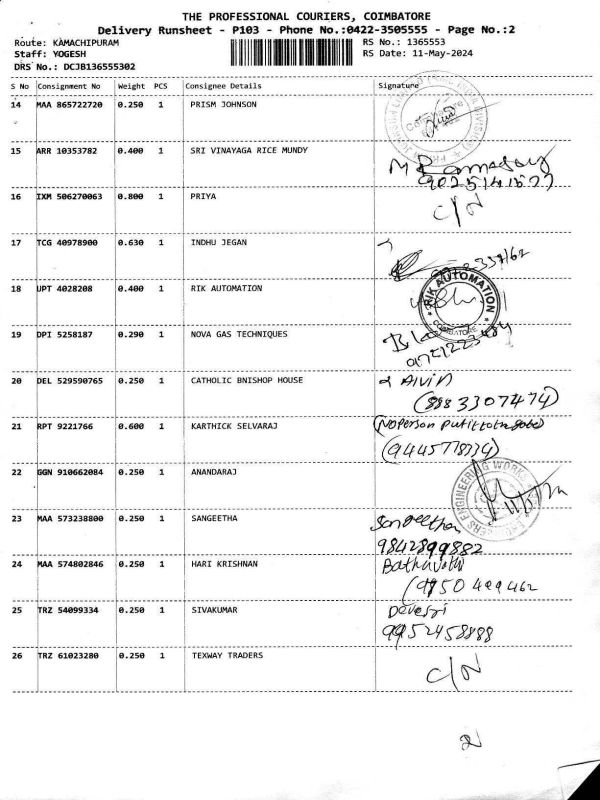 THE PROFESSIONAL COURIERS, COIMBATORE
Delivery Runsheet - P103 - Phone No.:0422-3505555 - Page No.:2
Route: KAMACHIPURAM RS No.: 1365553
Staff: YOGESH RS Date: 11-May-2024
DRS No.: DCJB136555302
S No Consignment No Weight PCS Consignee Details Signature
14 MAA 865722720 0.250 1 PRISM JOHNSON
15 ARR 10353782 0.400 1 SRI VINAYAGA RICE MUNDY
16 IXM 506270063 0.800 1 PRIYA C/N
17 TCG 40978900 0.630 1 INDHU JEGAN
18 UPT 4028208 0.400 1 RIK AUTOMATION
RIK AUTOMATION
COIMBATORE
19 DPI 5258187 0.290 1 NOVA GAS TECHNIQUES
20 DEL 529590765 0.250 1 CATHOLIC BNISHOP HOUSE Alvin
(8883307474)
21 RPT 9221766 0.600 1 KARTHICK SELVARAJ
(9445778334)
22 GGN 910662084 0.250 1 ANANDARAJ
ENGINEERING WORKS
23 MAA 573238800 0.250 1 SANGEETHA Sangeetha
9842899882
24 MAA 574802846 0.250 1 HARI KRISHNAN
25 TRZ 54099334 0.250 1 SIVAKUMAR
9952458888
26 TRZ 61023280 0.250 1 TEXWAY TRADERS C/N